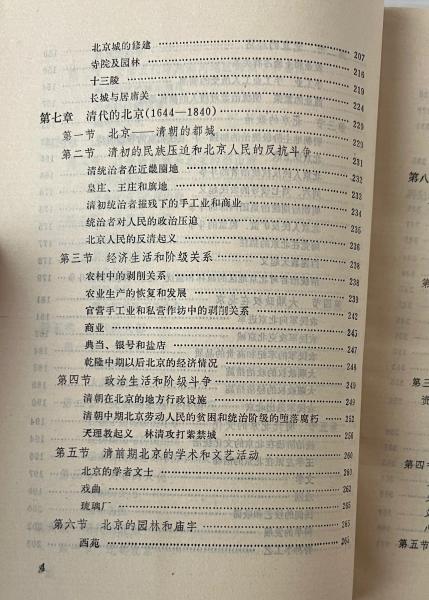 北京城的修建 207
寺院及园林 216
十三陵 219
长城与居庸关 224
第七章 清代的北京(1644—1840) 229
第一节 北京——清朝的都城 229
第二节 清初的民族压迫和北京人民的反抗斗争 231
清统治者在近畿圈地 231
皇庄、王庄和旗地 232
清初统治者摧残下的手工业和商业 234
统治者对人民的政治压迫 235
北京人民的反清起义 236
第三节 经济生活和阶级关系 238
农村中的剥削关系 238
农业生产的恢复和发展 239
官营手工业和私营作坊中的剥削关系 242
商业 245
典当、银号和盐店 247
乾隆中期以后北京的经济情况 248
第四节 政治生活和阶级斗争 249
清朝在北京的地方行政设施 249
清朝中期北京劳动人民的贫困和统治阶级的堕落腐朽 252
天理教起义 林清攻打紫禁城 256
第五节 清前期北京的学术和文艺活动 260
北京的学者文士 260
戏曲 262
琉璃厂 263
第六节 北京的园林和庙宇 265
西苑 265
4
第八
第三
资
第四
第五节